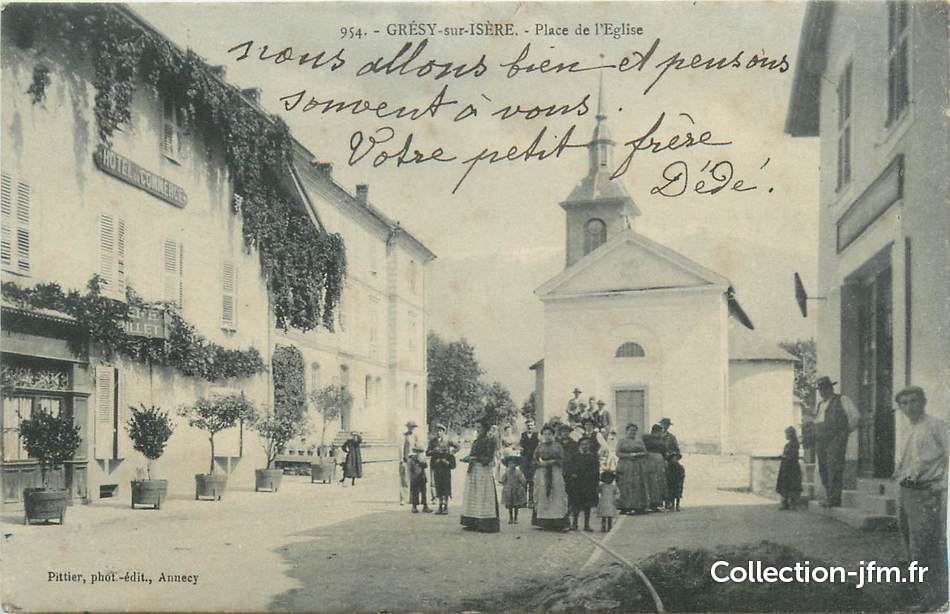 954. - GRÉSY-sur-ISÈRE. - Place de l'Eglise
nous allons bien et pensons
souvent à vous.
Votre petit frère
Dédé.
HOTEL DU COMMERCE
Pittier, phot.-édit., Annecy
Collection-jfm.fr